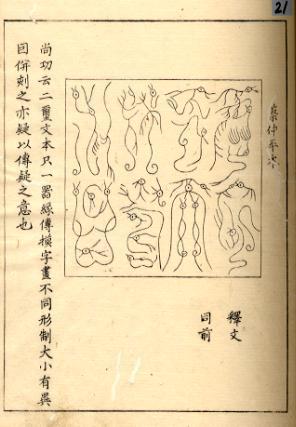 21
蔡仲平本
釋文
同前
尚功云二璽文本只一器緣傳摸字畫不同形制大小有異
因併刻之亦疑以傳疑之意也